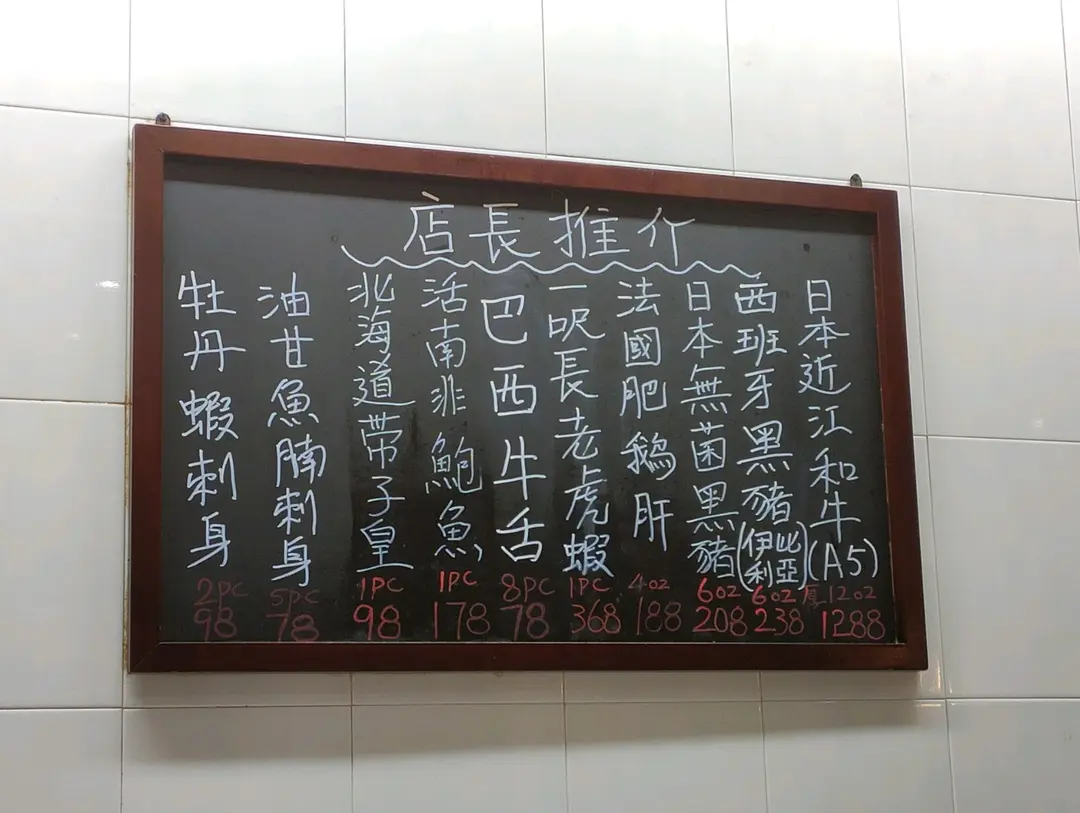 店長推介
日本近江和牛(A5)
12oz
1288
西班牙黑豬(伊比利亞)
6oz
238
日本無菌黑豬
6oz
208
法國肥鵝肝
4oz
188
一呎長老虎蝦
1PC
368
巴西牛舌
8PC
78
活南非鮑魚
1PC
178
北海道帶子皇
1PC
98
油甘魚腩刺身
5PC
78
牡丹蝦刺身
2PC
98